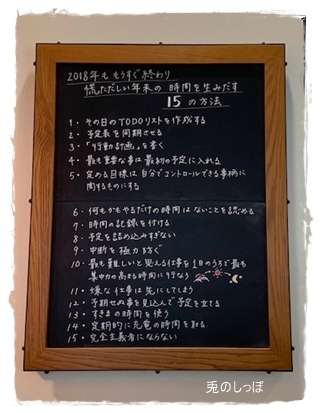 2018年も もうすぐ終わり
慌ただしい年末の 時間を生みだす
15の方法
1・ その日のTODOリストを作成する
2・ 予定表を同期させる
3・ 「行動計画」を書く
4・ 最も重要な事は 最初の予定に入れる
5・ 定める目標は 自分でコントロールできる事柄に
関するものにする
6・ 何もかもやるだけの時間は ないことを認める
7・ 時間の記録を付ける
8・ 予定を詰め込みすぎない
9・ 中断を極力防ぐ
10・ 最も難しいと思える仕事を1日のうちで最も
集中力の高まる時間に行なう
11・ 嫌な仕事は先にしてしまう
12・ 予期せぬ事を見込んで予定を立てる
13・ すきまの時間を使う
14・ 定期的に充電の時間を取る
15・ 完全主義者にならない
兎のしっぽ